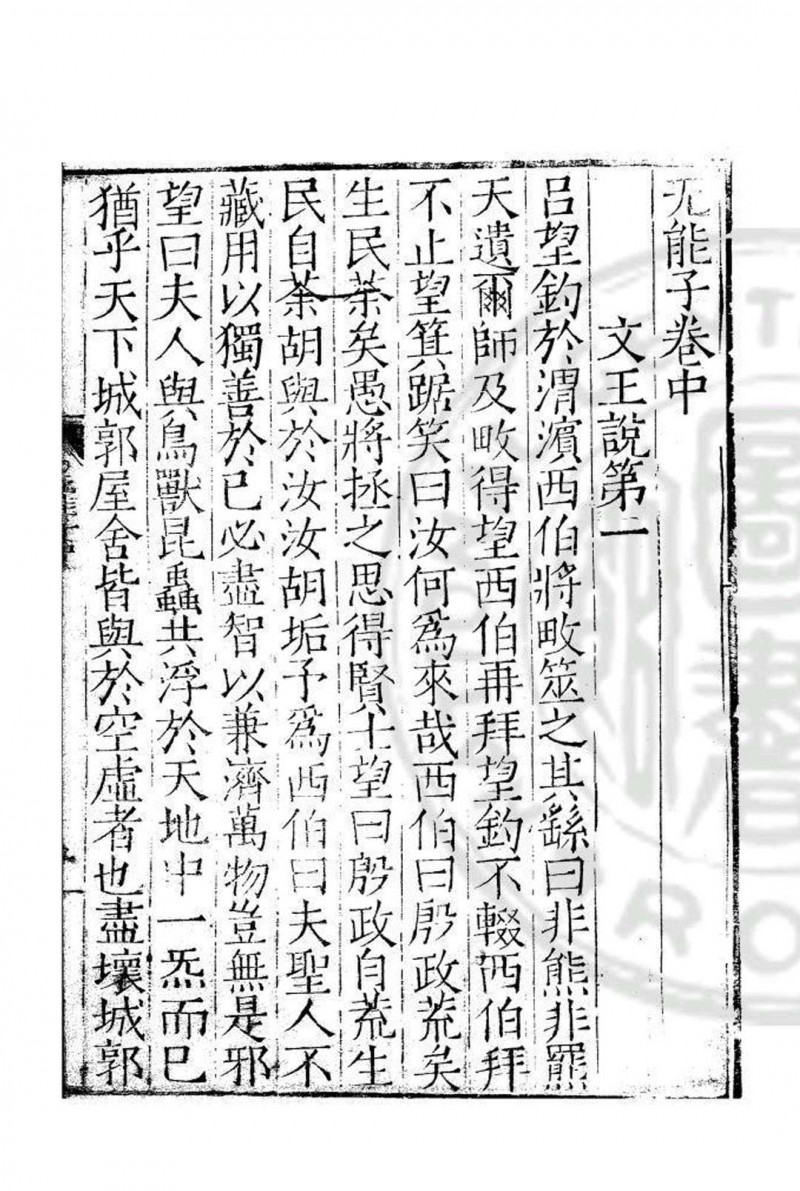 无能子卷中
文王說第一
呂望釣於渭濱西伯將畋筮之其繇曰非熊非羆
天遺爾師及畋得望西伯再拜望釣不輟西伯拜
不止望箕踞笑曰汝何爲來哉西伯曰殷政荒矣
生民荼矣愚將拯之思得賢士望曰殷政自荒生
民自荼胡與於汝汝胡垢予爲西伯曰夫聖人不
藏用以獨善於已必盡智以兼濟萬物豈無是邪
望曰夫人與鳥獸昆蟲共浮於天地中一炁而已
猶乎天下城郭屋舍皆與於空虛者也盡壞城郭